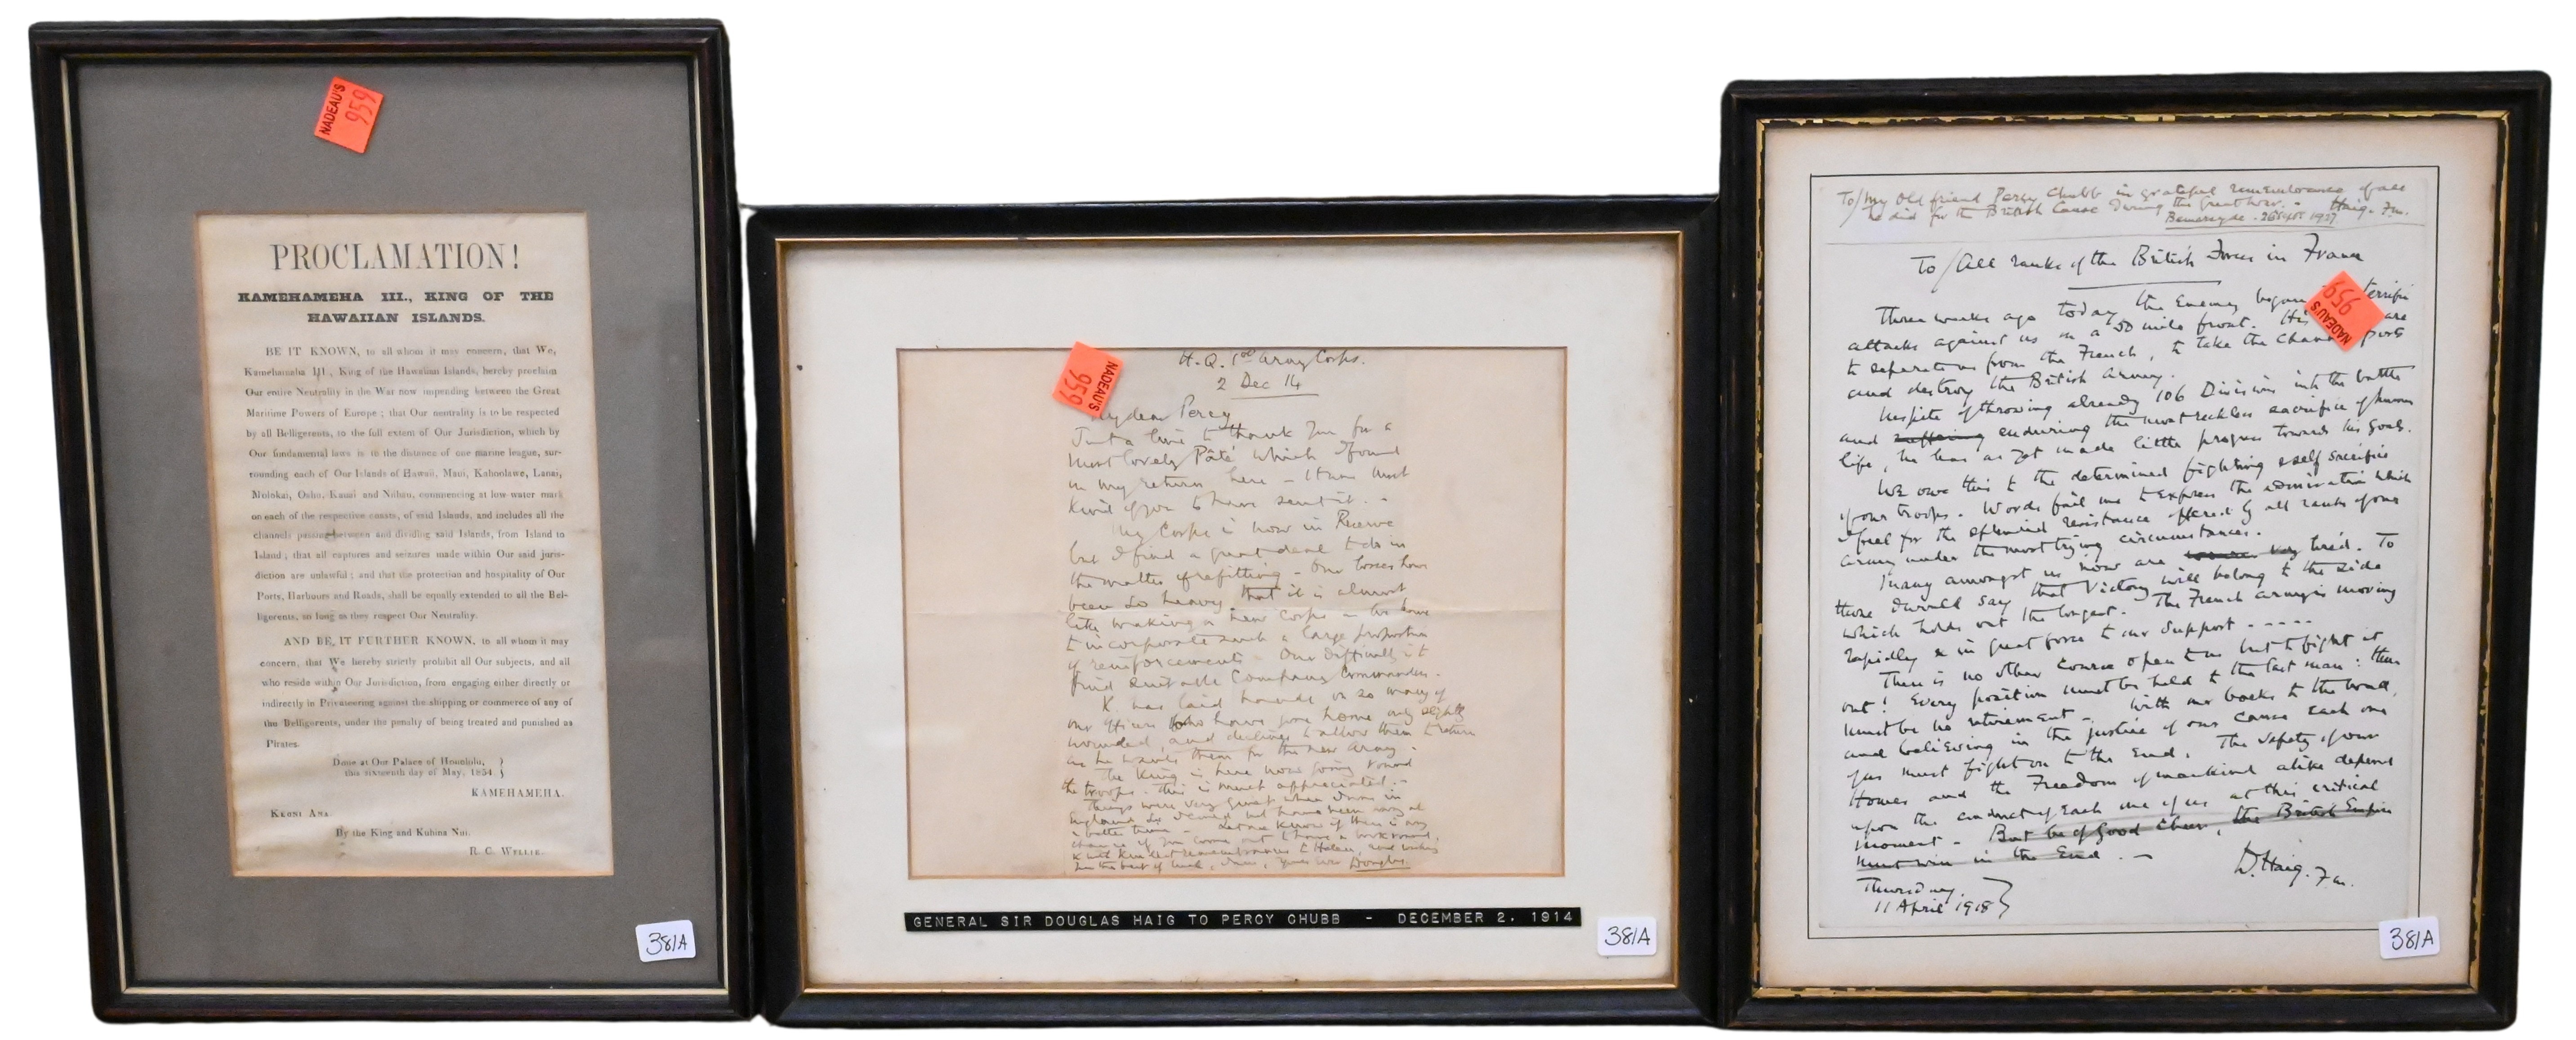 NADEAU'S
959
PROCLAMATION!
KAMEHAMEHA III., KING OF THE
HAWAIIAN ISLANDS.
BE IT KNOWN, to all whom it may concern, that We,
Kamehameha III., King of the Hawaiian Islands, hereby proclaim
Our entire Neutrality in the War now impending between the Great
Maritime Powers of Europe; that Our neutrality is to be respected
by all Belligerents, to the full extent of Our Jurisdiction, which by
Our fundamental laws is to the distance of one marine league, sur-
rounding each of Our Islands of Hawaii, Maui, Kahoolawe, Lanai,
Molokai, Oahu, Kauai and Niihau, commencing at low-water mark
on each of the respective coasts, of said Islands, and includes all the
channels passing between and dividing said Islands, from Island to
Island; that all captures and seizures made within Our said juris-
diction are unlawful; and that the protection and hospitality of Our
Ports, Harbours and Roads, shall be equally extended to all the Bel-
ligerents, so long as they respect Our Neutrality.
AND BE IT FURTHER KNOWN, to all whom it may
concern, that We hereby strictly prohibit all Our subjects, and all
who reside within Our Jurisdiction, from engaging either directly or
indirectly in Privateering against the shipping or commerce of any of
the Belligerents, under the penalty of being treated and punished as
Pirates.
Done at Our Palace of Honolulu,
this sixteenth day of May, 1854.
KAMEHAMEHA.
KEONI ANA.
By the King and Kuhina Nui.
R. C. WYLLIE.
381A
H.Q. 1st Army Corps.
2 Dec 14
NADEAU'S
959
My dear Percy
Just a line to thank you for a
most lovely Pâté which I found
on my return here – It was most
kind of you to have sent it. –
My Corps is now in Reserve
but I find a great deal to do in
the matter of refitting – Our losses have
been so heavy that it is almost
like making a new Corps – we have
to incorporate such a large proportion
of reinforcements – Our difficulty is to
find suitable Company Commanders.
K. has laid hands on so many of
our officers who have gone home only slightly
wounded, and declines to allow them to return
as he wants them for the new Army.
The King is here now going round
the troops. This is much appreciated. –
Things were very quiet when I was in
England
a better time – Let me know if there is any
chance of you coming out
kindest remembrances to Helen, and wishing
you the best of luck, Yours ever Douglas.
GENERAL SIR DOUGLAS HAIG TO PERCY CHUBB - DECEMBER 2. 1914
381A
To/My old friend Percy Chubb in grateful remembrance of all
he did for the British Cause during the Great War. – Haig. F.M.
Bemersyde. 26 Sept 1927
To/All ranks of the British Forces in France
NADEAU'S
959
Three weeks ago today the Enemy began terrific
attacks against us on a 50 mile front. His are
to separate us from the French, to take the Channel ports
and destroy the British Army.
In spite of throwing already 106 Divisions into the battle
and suffering enduring the most reckless sacrifice of human
life, he has as yet made little progress towards his goals.
We owe this to the determined fighting & self sacrifice
of our troops. Words fail me to express the admiration which
I feel for the splendid resistance offered by all ranks of our
army under the most trying circumstances.
Many amongst us now are very tired. To
those I would say that Victory will belong to the side
which holds out the longest. The French Army is moving
rapidly & in great force to our support . – – – –
There is no other course open to us but to fight it
out! Every position must be held to the last man: there
must be no retirement – With our backs to the wall,
and believing in the justice of our cause each one
of us must fight on to the End. The safety of our
Homes and the Freedom of mankind alike depend
upon the conduct of Each one of us at this critical
moment – But be of Good cheer, the British Empire
must win in the End. –
D. Haig. F.M.
Thursday.
11 April 1918
381A